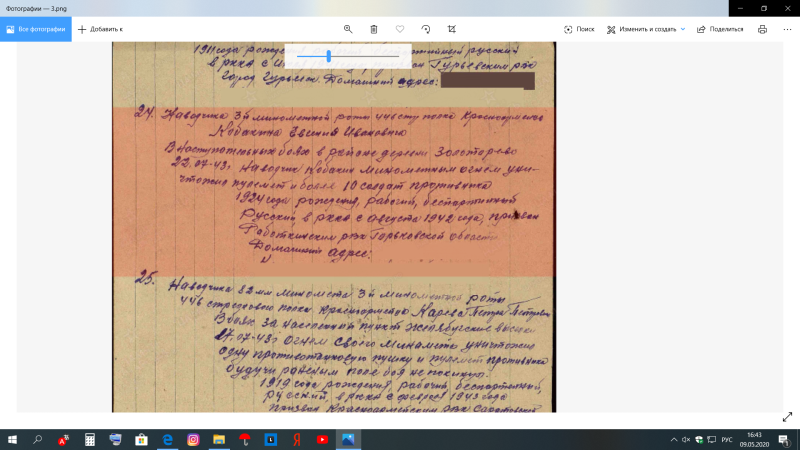 Фотографии — 3.png
Все фотографии
Добавить к
Поиск
Изменить и создать
Поделиться
1911 года русский
в РККА с Гурьевским рвк
город Гурьев. Домашний адрес:
24. Наводчика 3й минометной роты 446 сту полка Красноармейца
Кобакина Евгения Ивановича
В наступательных боях в районе деревни Золотарево
22.07.43г. Наводчик Кобакин минометным огнём уни-
чтожил пулемет и более 10 солдат противника
1924 года рождения, рабочий, беспартийный
Русский, в РККА с августа 1942 года, призван
Работкинским рвк Горьковской области
Домашний адрес:
25. Наводчика 82 мм миномета 3й минометной роты
446 стрелкового полка Красноармейца Карева Петра Петровича
В боях за населенный пункт Желябугские высели
27.07.43г. Огнем своего миномета уничтожил
одну противотанковую пушку и пулемет противника
будучи раненым поле боя не покинул.
1919 года рождения, рабочий, беспартийный,
русский, в РККА с февраля 1943 года
призван Красноармейским рвк Саратовской
РУС
16:43
09.05.2020
1